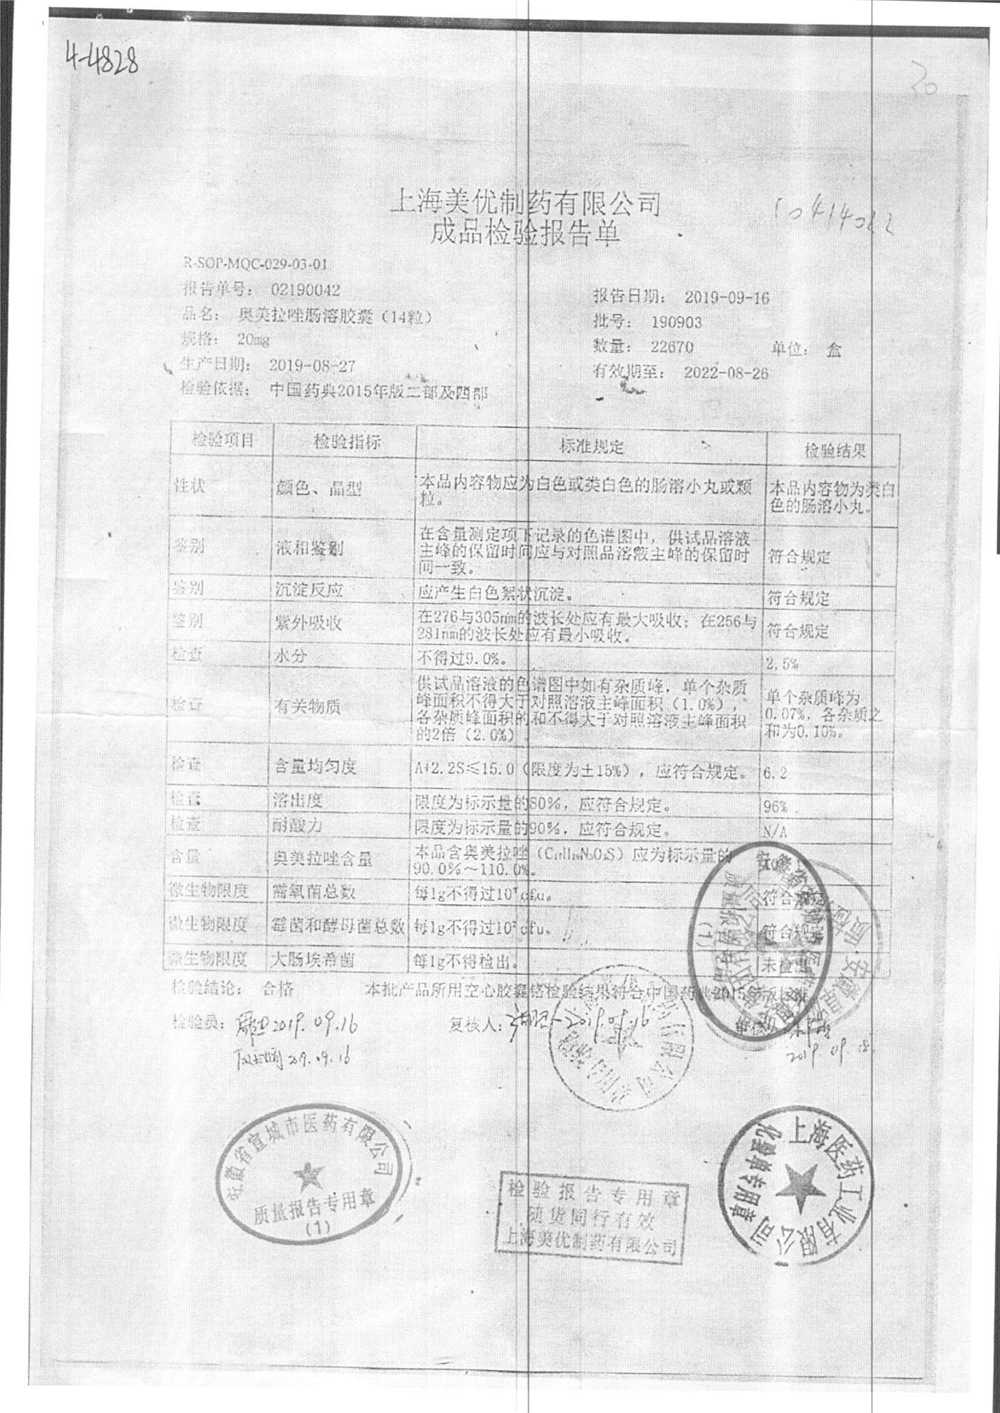 4-4828
20
上海美优制药有限公司
10414022
成品检验报告单
R-SOP-MQC-029-03-01
报告单号: 02190042
报告日期: 2019-09-16
品名: 奥美拉唑肠溶胶囊（14粒）
批号: 190903
规格: 20mg
数量: 22670 单位: 盒
生产日期: 2019-08-27
有效期至: 2022-08-26
检验依据: 中国药典2015年版二部及四部
检验项目 检验指标 标准规定 检验结果
性状 颜色、晶型 本品内容物应为白色或类白色的肠溶小丸或颗
粒。
本品内容物为类白
色的肠溶小丸。
鉴别 液相鉴别 在含量测定项下记录的色谱图中，供试品溶液
主峰的保留时间应与对照品溶液主峰的保留时
间一致。
符合规定
鉴别 沉淀反应 应产生白色絮状沉淀。 符合规定
鉴别 紫外吸收 在276与305nm的波长处应有最大吸收；在256与
281nm的波长处应有最小吸收。
符合规定
检查 水分 不得过9.0%。 2.5%
检查 有关物质 供试品溶液的色谱图中如有杂质峰，单个杂质
峰面积不得大于对照溶液主峰面积（1.0%），
各杂质峰面积的和不得大于对照溶液主峰面积
的2倍（2.0%）
单个杂质峰为
0.07%，各杂质之
和为0.10%。
检查 含量均匀度 A+2.2S≤15.0（限度为±15%），应符合规定。 6.2
检查 溶出度 限度为标示量的80%，应符合规定。 96%
检查 耐酸力 限度为标示量的90%，应符合规定。 N/A
含量 奥美拉唑含量 本品含奥美拉唑（C₁₇H₁₉N₃O₃S）应为标示量的
90.0%～110.0%。
微生物限度 需氧菌总数 每1g不得过10³cfu。 符合
微生物限度 霉菌和酵母菌总数 每1g不得过10²cfu。 符合规
微生物限度 大肠埃希菌 每1g不得检出。 未检
检验结论: 合格 本批产品所用空心胶囊铬检验结果符合中国药典2015
检验员: 2019.09.16 复核人: 2019.09.16
2019.09.16
2019 09 18
安徽省宣城市医药有限公司
质量报告专用章
(1)
检验报告专用章
随货同行有效
上海美优制药有限公司
上海医药工业有限公司
化验单专用章